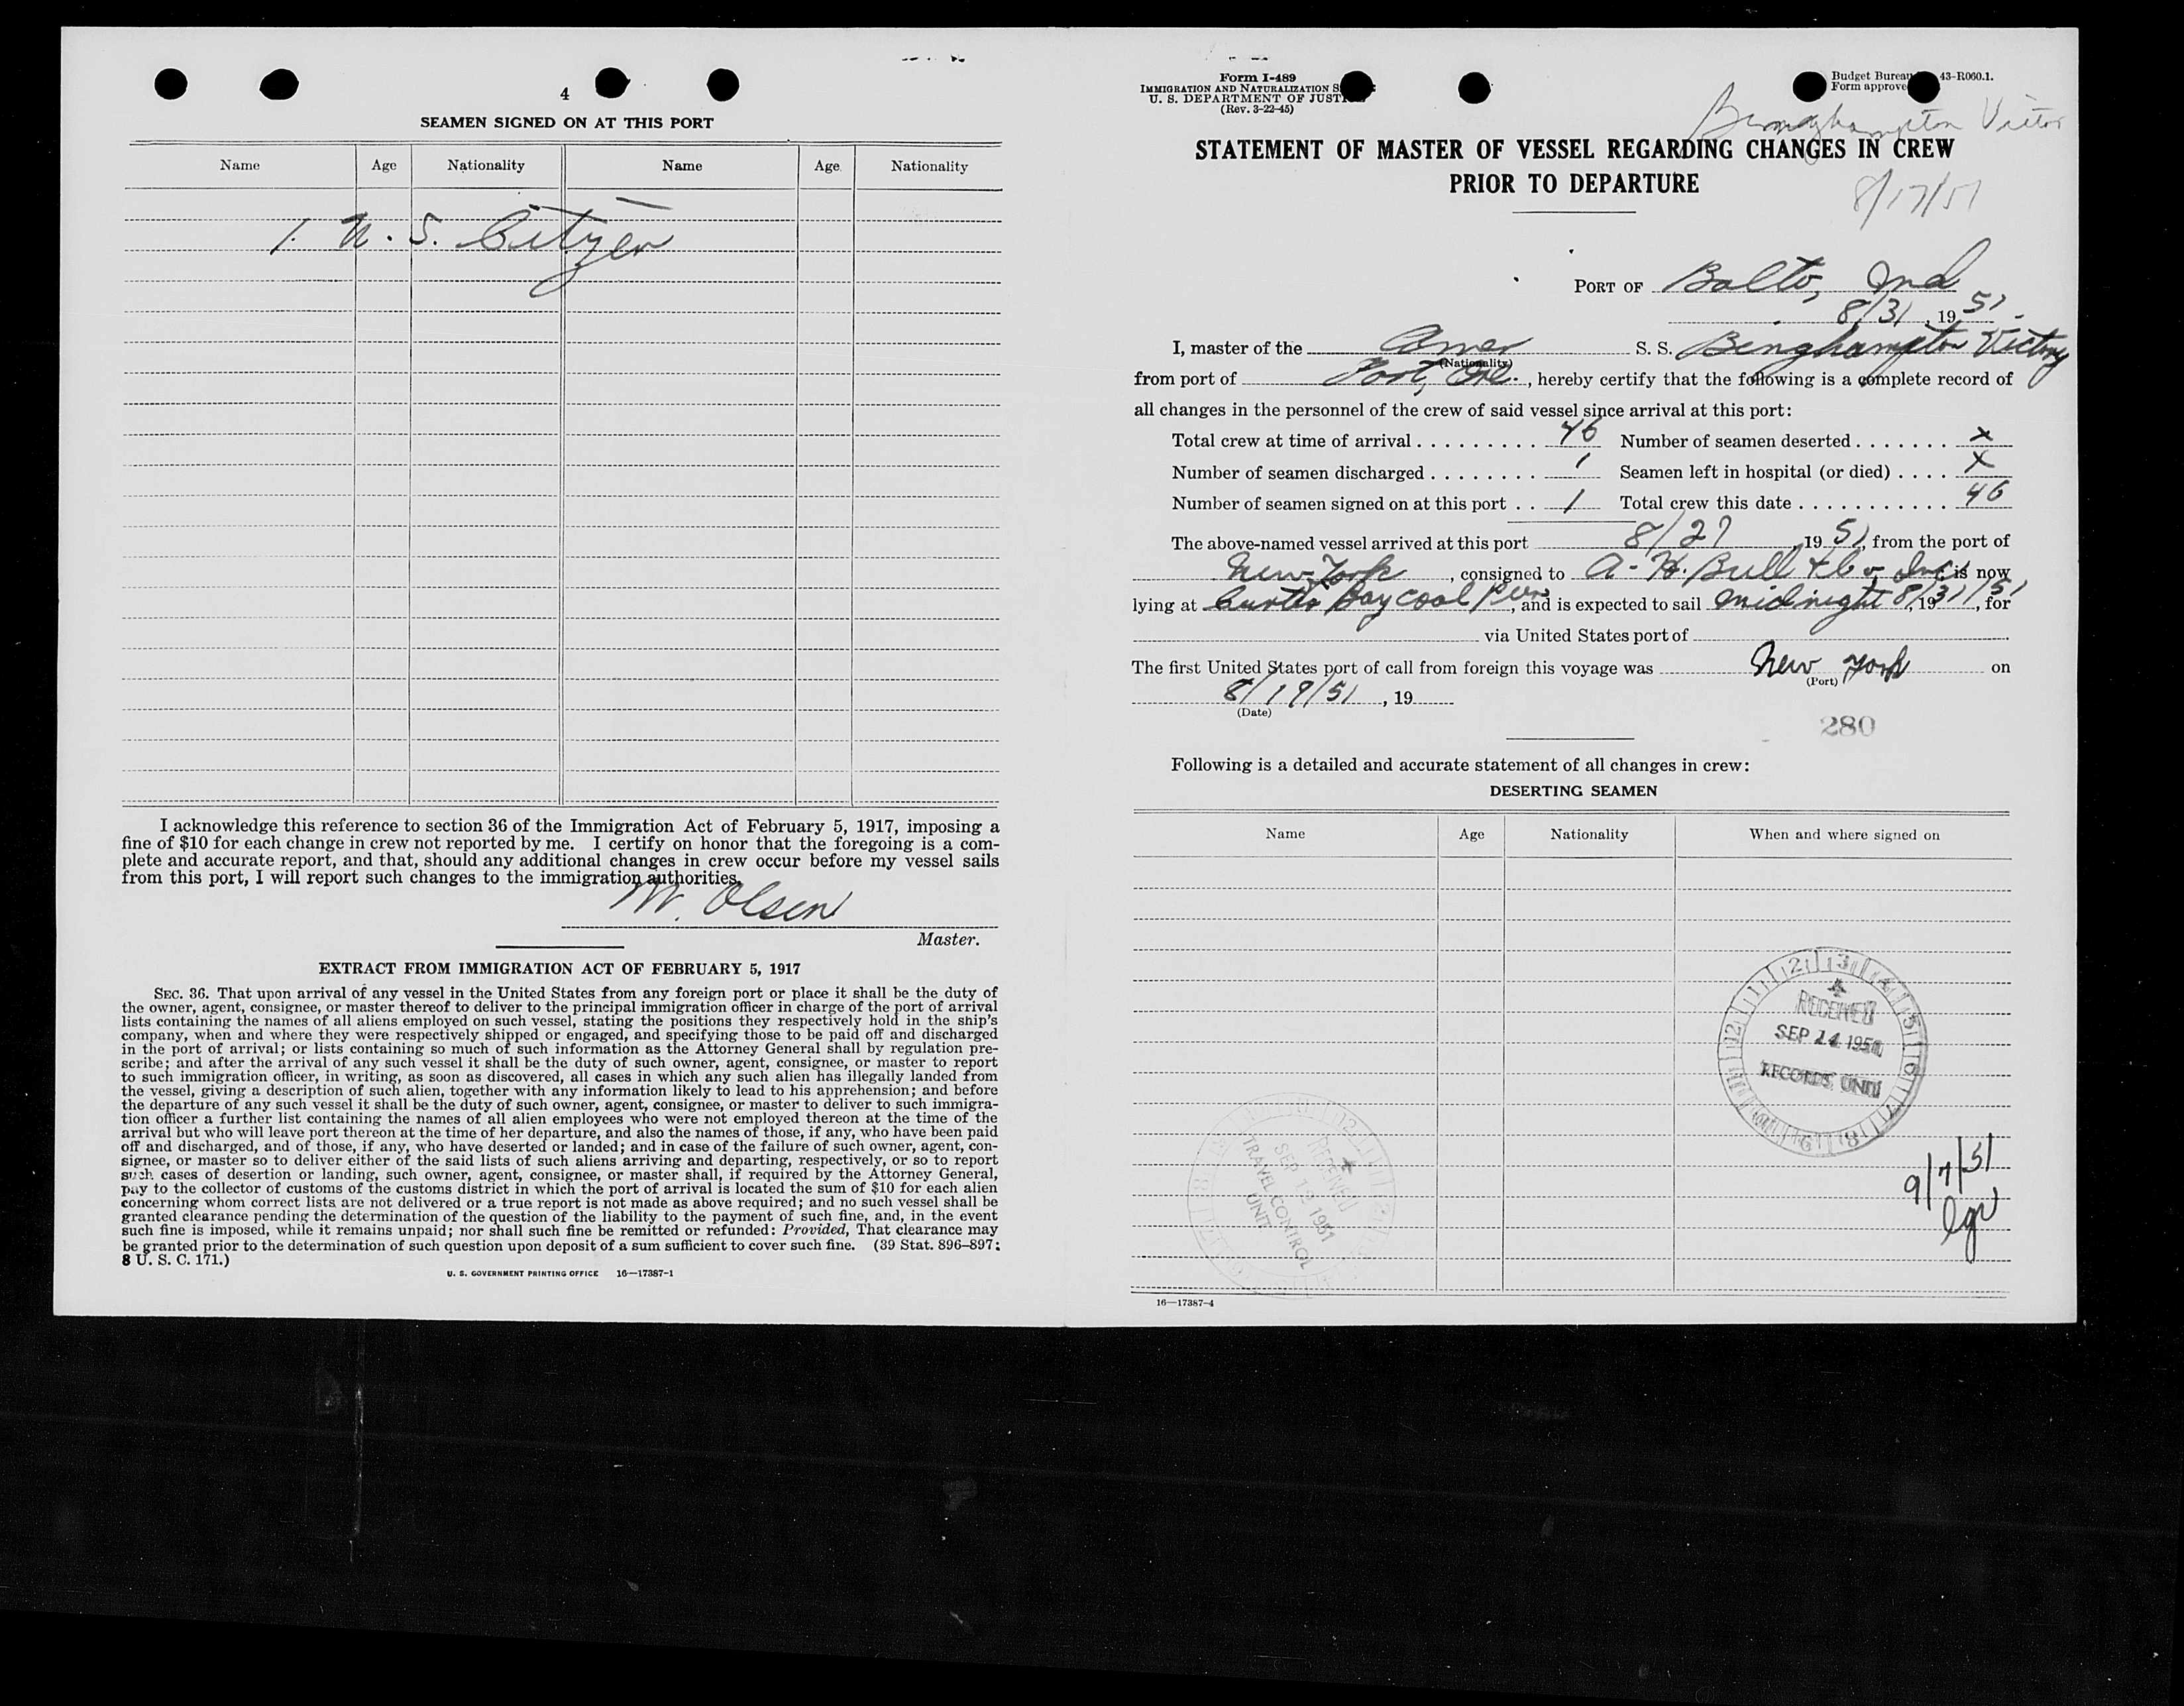 4
SEAMEN SIGNED ON AT THIS PORT
Name Age Nationality Name Age Nationality
1. U. S. Citizen
I acknowledge this reference to section 36 of the Immigration Act of February 5, 1917, imposing a
fine of $10 for each change in crew not reported by me. I certify on honor that the foregoing is a com-
plete and accurate report, and that, should any additional changes in crew occur before my vessel sails
from this port, I will report such changes to the immigration authorities.
W. Olsen
Master.
EXTRACT FROM IMMIGRATION ACT OF FEBRUARY 5, 1917
SEC. 36. That upon arrival of any vessel in the United States from any foreign port or place it shall be the duty of
the owner, agent, consignee, or master thereof to deliver to the principal immigration officer in charge of the port of arrival
lists containing the names of all aliens employed on such vessel, stating the positions they respectively hold in the ship's
company, when and where they were respectively shipped or engaged, and specifying those to be paid off and discharged
in the port of arrival; or lists containing so much of such information as the Attorney General shall by regulation pre-
scribe; and after the arrival of any such vessel it shall be the duty of such owner, agent, consignee, or master to report
to such immigration officer, in writing, as soon as discovered, all cases in which any such alien has illegally landed from
the vessel, giving a description of such alien, together with any information likely to lead to his apprehension; and before
the departure of any such vessel it shall be the duty of such owner, agent, consignee, or master to deliver to such immigra-
tion officer a further list containing the names of all alien employees who were not employed thereon at the time of the
arrival but who will leave port thereon at the time of her departure, and also the names of those, if any, who have been paid
off and discharged, and of those, if any, who have deserted or landed; and in case of the failure of such owner, agent, con-
signee, or master so to deliver either of the said lists of such aliens arriving and departing, respectively, or so to report
such cases of desertion or landing, such owner, agent, consignee, or master shall, if required by the Attorney General,
pay to the collector of customs of the customs district in which the port of arrival is located the sum of $10 for each alien
concerning whom correct lists are not delivered or a true report is not made as above required; and no such vessel shall be
granted clearance pending the determination of the question of the liability to the payment of such fine, and, in the event
such fine is imposed, while it remains unpaid; nor shall such fine be remitted or refunded: Provided, That clearance may
be granted prior to the determination of such question upon deposit of a sum sufficient to cover such fine. (39 Stat. 896–897;
8 U. S. C. 171.)
U. S. GOVERNMENT PRINTING OFFICE 16—17387-1
Form I-489
IMMIGRATION AND NATURALIZATION S
U. S. DEPARTMENT OF JUST
(Rev. 3-22-45)
Budget Bureau 43-R060.1.
Form approve
Binghampton Victor
STATEMENT OF MASTER OF VESSEL REGARDING CHANGES IN CREW
PRIOR TO DEPARTURE
8/17/51
PORT OF Balto, Md
8/31, 1951.
I, master of the Amer S. S. Binghampton Victory
(Nationality)
from port of Port, Ore., hereby certify that the following is a complete record of
all changes in the personnel of the crew of said vessel since arrival at this port:
Total crew at time of arrival . . . . . . . . . 46 Number of seamen deserted . . . . . . . x
Number of seamen discharged . . . . . . . . 1 Seamen left in hospital (or died) . . . . x
Number of seamen signed on at this port . . 1 Total crew this date . . . . . . . . . . . 46
The above-named vessel arrived at this port 8/27, 1951, from the port of
New York, consigned to A. H. Bull & Co, Inc is now
lying at Curtis Bay Coal Pier, and is expected to sail midnight 8/31/51, 19, for
via United States port of
The first United States port of call from foreign this voyage was New York on
(Port)
8/19/51, 19
(Date)
280
Following is a detailed and accurate statement of all changes in crew:
DESERTING SEAMEN
Name Age Nationality When and where signed on
RECEIVED
SEP 14 1951
RECORDS UNIT
RECEIVED
SEP 13 1951
TRAVEL CONTROL
UNIT
9/7/51
lgw
16—17387-4